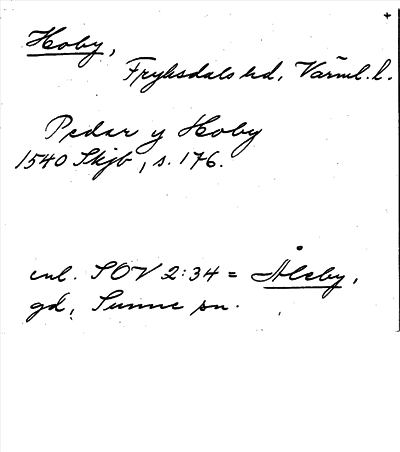 Hoby,
Fryksdals hd, Värml. l.
Pedar y Hoby
1540 Skjb, s. 176.
enl. SOV 2:34 = Åleby,
gd, Sunne sn.